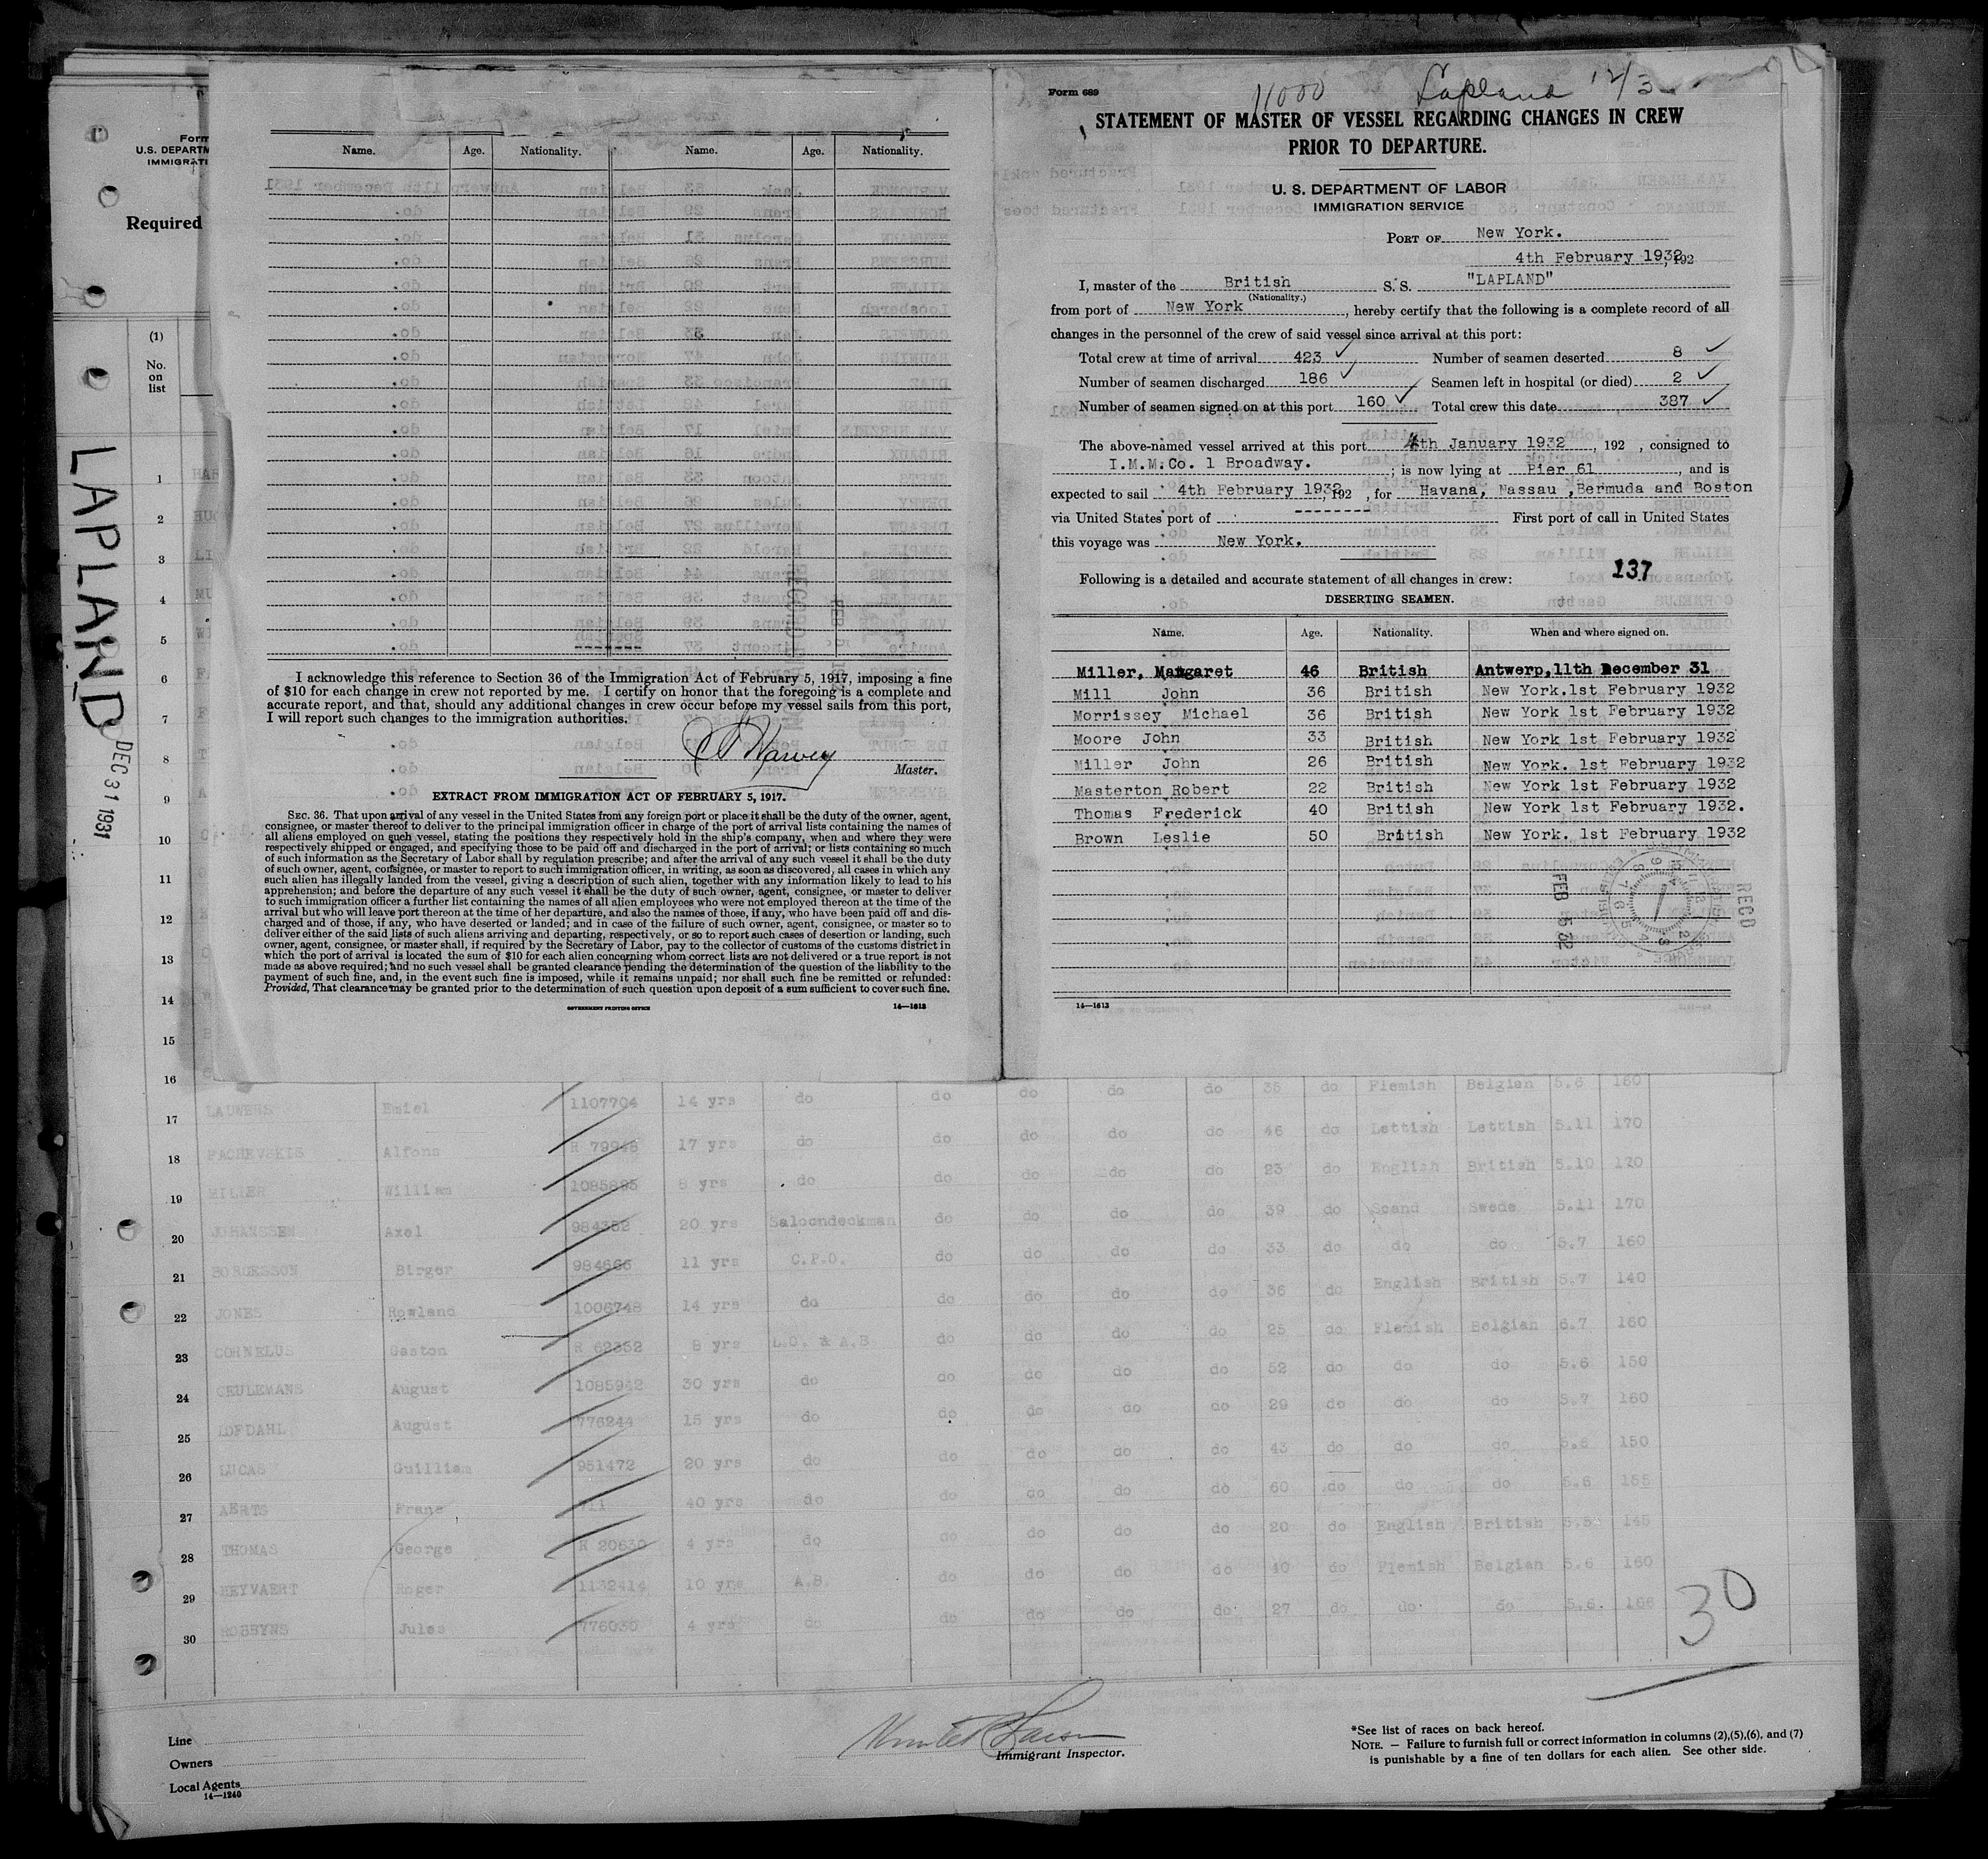 Form
U.S. DEPARTM
IMMIGRATI
Required
(1)
No.
on
list
LAPLAND
DEC 31 1931
1
2
3
4
5
6
7
8
9
10
11
12
13
14
15
Name. Age. Nationality. Name. Age. Nationality.
I acknowledge this reference to Section 36 of the Immigration Act of February 5, 1917, imposing a fine
of $10 for each change in crew not reported by me. I certify on honor that the foregoing is a complete and
accurate report, and that, should any additional changes in crew occur before my vessel sails from this port,
I will report such changes to the immigration authorities.
Harvey
Master.
EXTRACT FROM IMMIGRATION ACT OF FEBRUARY 5, 1917.
SEC. 36. That upon arrival of any vessel in the United States from any foreign port or place it shall be the duty of the owner, agent,
consignee, or master thereof to deliver to the principal immigration officer in charge of the port of arrival lists containing the names of
all aliens employed on such vessel, stating the positions they respectively hold in the ship's company, when and where they were
respectively shipped or engaged, and specifying those to be paid off and discharged in the port of arrival; or lists containing so much
of such information as the Secretary of Labor shall by regulation prescribe; and after the arrival of any such vessel it shall be the duty
of such owner, agent, consignee, or master to report to such immigration officer, in writing, as soon as discovered, all cases in which any
such alien has illegally landed from the vessel, giving a description of such alien, together with any information likely to lead to his
apprehension; and before the departure of any such vessel it shall be the duty of such owner, agent, consignee, or master to deliver
to such immigration officer a further list containing the names of all alien employees who were not employed thereon at the time of the
arrival but who will leave port thereon at the time of her departure, and also the names of those, if any, who have been paid off and dis-
charged and of those, if any, who have deserted or landed; and in case of the failure of such owner, agent, consignee, or master so to
deliver either of the said lists of such aliens arriving and departing, respectively, or so to report such cases of desertion or landing, such
owner, agent, consignee, or master shall, if required by the Secretary of Labor, pay to the collector of customs of the customs district in
which the port of arrival is located the sum of $10 for each alien concerning whom correct lists are not delivered or a true report is not
made as above required; and no such vessel shall be granted clearance pending the determination of the question of the liability to the
payment of such fine, and, in the event such fine is imposed, while it remains unpaid; nor shall such fine be remitted or refunded:
Provided, That clearance may be granted prior to the determination of such question upon deposit of a sum sufficient to cover such fine.
GOVERNMENT PRINTING OFFICE 14—1613
Form 689
11000 Lapland 12/3
STATEMENT OF MASTER OF VESSEL REGARDING CHANGES IN CREW
PRIOR TO DEPARTURE.
U. S. DEPARTMENT OF LABOR
IMMIGRATION SERVICE
PORT OF New York.
4th February 1932, 192
I, master of the British S. S. "LAPLAND"
(Nationality.)
from port of New York, hereby certify that the following is a complete record of all
changes in the personnel of the crew of said vessel since arrival at this port:
Total crew at time of arrival 423 ✓ Number of seamen deserted 8 ✓
Number of seamen discharged 186 ✓ Seamen left in hospital (or died) 2 ✓
Number of seamen signed on at this port 160 ✓ Total crew this date 387 ✓
The above-named vessel arrived at this port 4th January 1932, 192 , consigned to
I.M.M.Co. 1 Broadway. ; is now lying at Pier 61, and is
expected to sail 4th February 1932, 192 , for Havana, Nassau ,Bermuda and Boston
via United States port of -------- First port of call in United States
this voyage was New York.
Following is a detailed and accurate statement of all changes in crew: 137
DESERTING SEAMEN.
Name. Age. Nationality. When and where signed on.
Miller, Margaret 46 British Antwerp,11th December 31
Mill John 36 British New York.1st February 1932
Morrissey Michael 36 British New York 1st February 1932
Moore John 33 British New York 1st February 1932
Miller John 26 British New York. 1st February 1932
Masterton Robert 22 British New York 1st February 1932
Thomas Frederick 40 British New York 1st February 1932.
Brown Leslie 50 British New York. 1st February 1932
FEB 5 32
RECD
14—1613
16 do do do do do 35 do Flemish Belgian 5.6 160
17 LAUWERS Emiel 1107704 14 yrs do
do do do do 46 do Lettish Lettish 5.11 170
18 PACHEVSKIS Alfons R 79948 17 yrs do
do do do do 23 do English British 5.10 120
19 MILLER William 1085895 8 yrs do
do do do do 39 do Scand Swede 5.11 170
20 JOHANSSEN Axel 984352 20 yrs Saloondeckman
do do do do 33 do do do 5.7 160
21 BORGESSON Birger 984666 11 yrs C.P.O.
do do do do 36 do English British 5.7 140
22 JONES Rowland 1006748 14 yrs do
do do do do 25 do Flemish Belgian 5.7 160
23 CORNELUS Gaston R 62352 8 yrs L.O. & A.B
do do do do 52 do do do 5.6 150
24 CEULEMANS August 1085942 30 yrs do
do do do do 29 do do do 5.7 160
25 LOFDAHL August 776244 15 yrs do
do do do do 43 do do do 5.6 150
26 LUCAS Guilliam 951472 20 yrs do
do do do do 60 do do do 5.6 155
27 AERTS Frans 711 40 yrs do
do do do do 20 do English British 5.5 145
28 THOMAS George R 20630 4 yrs do
do do do do 40 do Flemish Belgian 5.6 160
29 HEYVAERT Roger 1132414 10 yrs A.B.
do do do do 27 do do do 5.6. 166
30 ROBBYNS Jules 776035 4 yrs do
30
Line
Owners
Local Agents
14—1240
Immigrant Inspector.
*See list of races on back hereof.
NOTE. — Failure to furnish full or correct information in columns (2),(5),(6), and (7)
is punishable by a fine of ten dollars for each alien. See other side.